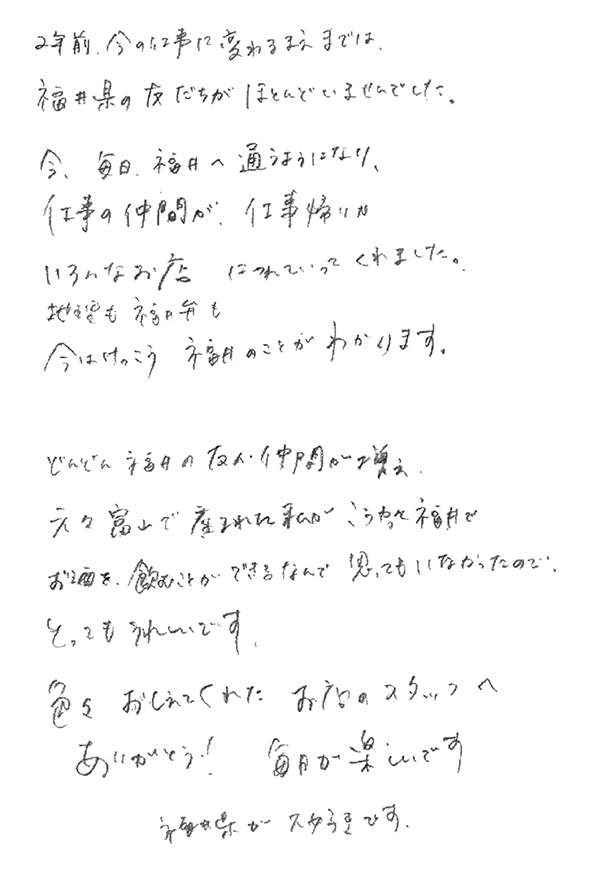 2年前、今の仕事に変わるまえまでは、
福井県の友だちがほとんどいませんでした。
今、毎日、福井へ通うようになり、
仕事の仲間が、仕事帰りに
いろんなお店 につれていってくれました。
地理も福井弁も
今はけっこう 福井のことがわかります。
どんどん福井の友人・仲間が増え、
元々富山で産まれた私が こうやって福井で
お酒を、飲むことができるなんて 思ってもいなかったので、
とってもうれしいです。
色々 おしえてくれた お店のスタッフへ
ありがとう! 毎日が楽しいです
福井県が スキです。